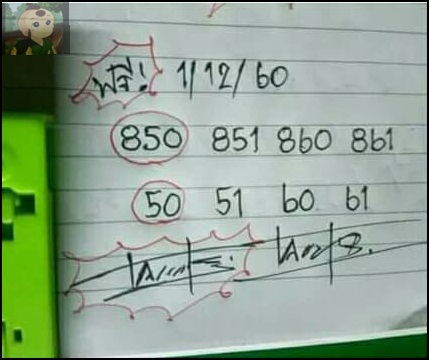 ฟรี! 1/12/60
850 851 860 861
50 51 60 61